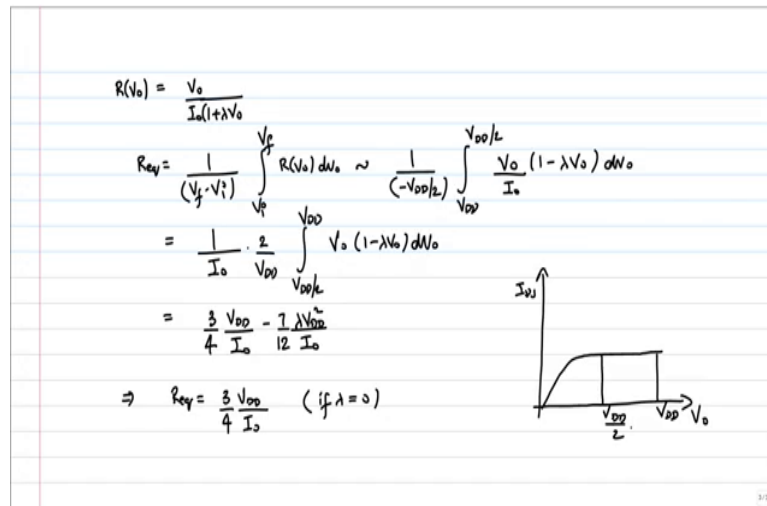 R(V₀) = V₀ / I₀(1+λV₀
Req = 1/(V_f - V_i) ∫_{V_i}^{V_f} R(V₀) dV₀ ~ 1/(-V_DD/2) ∫_{V_DD}^{V_DD/2} V₀/I₀ (1-λV₀) dV₀
= 1/I₀ · 2/V_DD ∫_{V_DD/2}^{V_DD} V₀ (1-λV₀) dV₀
= 3/4 V_DD/I₀ - 7/12 λV_DD²/I₀
⇒ Req = 3/4 V_DD/I₀ (if λ=0)
I_DS
V_DD/2 V_DD V₀